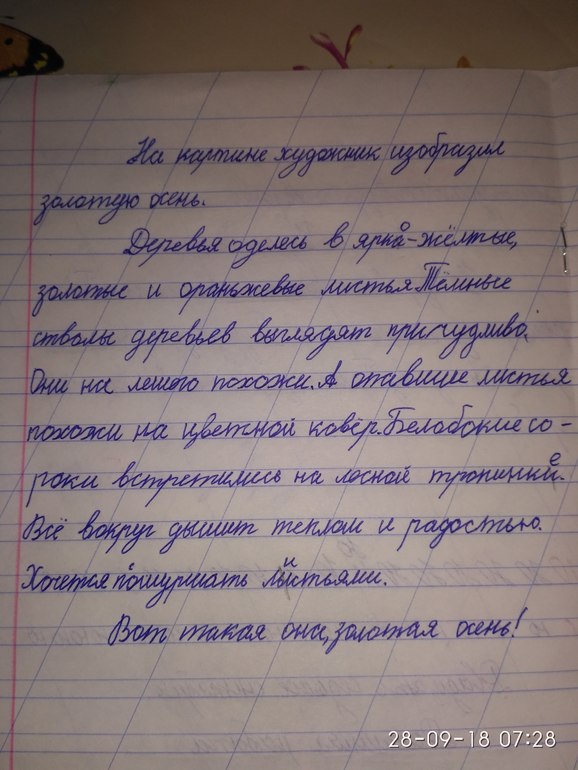 На картине художник изобразил
золотую осень.
Деревья оделесь в ярко-жёлтые,
золотые и ораньжевые листья. Тёмные
стволы деревьев выглядят причудливо.
Они на лешего похожи. А опавшие листья
похожи на цветной ковёр. Белобокие со-
роки встретились на лесной тропинке.
Всё вокруг дышит теплом и радостью.
Хочется пошуршать листьями.
Вот такая она, золотая осень!
28-09-18 07:28